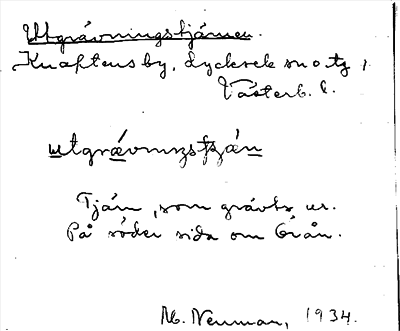 Utgrävningstjärnen.
Knaftens by, Lycksele sn o tg,
Västerb. l.
utgrävnıŋstjän
Tjärn, som grävts ur.
På söder sida om Örån.
M. Neuman, 1934.